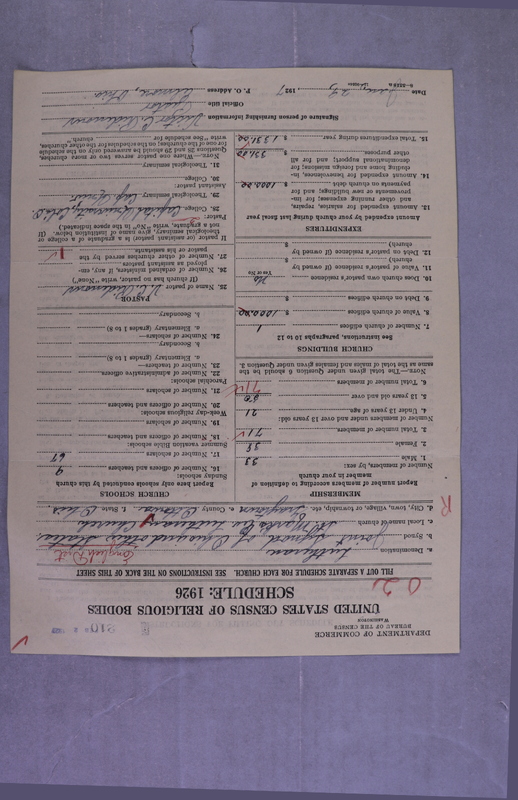 DEPARTMENT OF COMMERCE
BUREAU OF THE CENSUS
WASHINGTON
UNITED STATES CENSUS OF RELIGIOUS BODIES
SCHEDULE: 1926
FILL OUT A SEPARATE SCHEDULE FOR EACH CHURCH. SEE INSTRUCTIONS ON THE BACK OF THIS SHEET
a. Denomination Lutheran
b. Synod Joint Synod of Ohio and other States
c. Local name of church St Marks Ev. Lutheran Church
d. City, town, village, or township, etc. e. County Ottawa f. State Ohio
MEMBERSHIP
Report number of members according to definition of
member in your church
Number of members, by sex:
1. Male 33
2. Female 38
3. Total number of members 71
Number of members under and over 13 years old:
4. Under 13 years of age 21
5. 13 years old and over 50
6. Total number of members 71
NOTE.—The total given under Question 6 should be the
same as the total of males and females given under Question 3.
CHURCH BUILDINGS
See Instructions, paragraphs 10 to 12
7. Number of church edifices 1
8. Value of church edifices $ 1000.00
9. Debt on church edifices $
10. Does church own pastor's residence No
Yes or No
11. Value of pastor's residence (if owned by
church) $
12. Debt on pastor's residence (if owned by
church) $
EXPENDITURES
Amount expended by your church during last fiscal year
13. Amount expended for salaries, repairs,
and other running expenses; for im-
provements or new buildings; and for
payments on church debt $
14. Amount expended for benevolences, in-
cluding home and foreign missions; for
denominational support; and for all
other purposes
15. Total expenditures during year $
CHURCH SCHOOLS
Report here only schools conducted by this church
Sunday schools:
16. Number of officers and teachers 9
17. Number of scholars 67
Summer vacation Bible schools:
18. Number of officers and teachers
19. Number of scholars
Week-day religious schools:
20. Number of officers and teachers
21. Number of scholars
Parochial schools:
22. Number of administrative officers
23. Number of teachers—
a. Elementary (grades 1 to 8)
b. Secondary
24. Number of scholars—
a. Elementary (grades 1 to 8)
b. Secondary
PASTOR
25. Name of pastor
(If church has no pastor, write "None")
26. Number of ordained ministers, if any, em-
ployed as assistant pastors
27. Number of other churches served by the
pastor or his assistants 1
If pastor (or assistant pastor) is a graduate of a college or
theological seminary, give names of institution below. (If
not a graduate, write "No" in the space indicated)
Pastor:
28. College Capital University, Col. O
29. Theological seminary
Assistant pastor:
30. College
31. Theological seminary
NOTE.—Where one pastor serves two or more churches,
Questions 25 and 28 should be answered only on the schedule
for one of the churches; on the schedules for the other churches,
write "See schedule for church."
Signature of person furnishing information
Official title Pastor
Date 1927 P. O. Address Elmore, Ohio